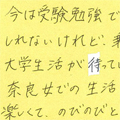 今は受験勉強で
しれないけれど、
大学生活が待ってい
奈良女での生活
楽しくて、のびのびと